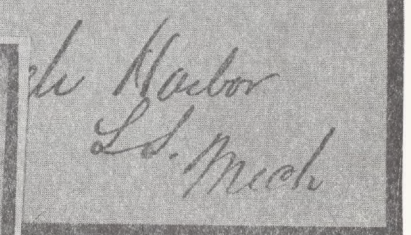 le Harbor
L.S. Mich